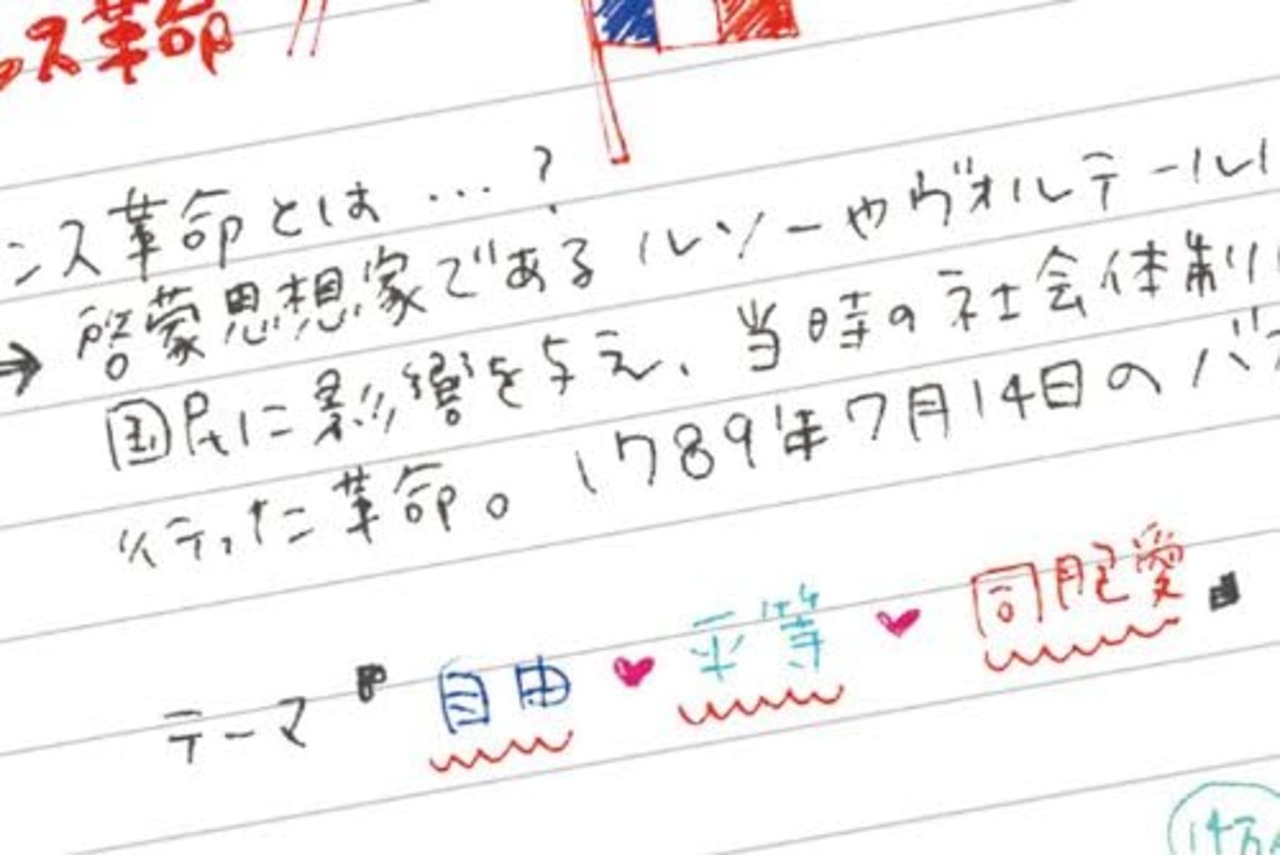 ンス革命
ンス革命とは…?
→ 啓蒙思想家である ルソーやヴォルテール
国民に影響を与え、当時の社会体制
行った革命。1789年7月14日のバ
テーマ『自由♥平等♥同胞愛』